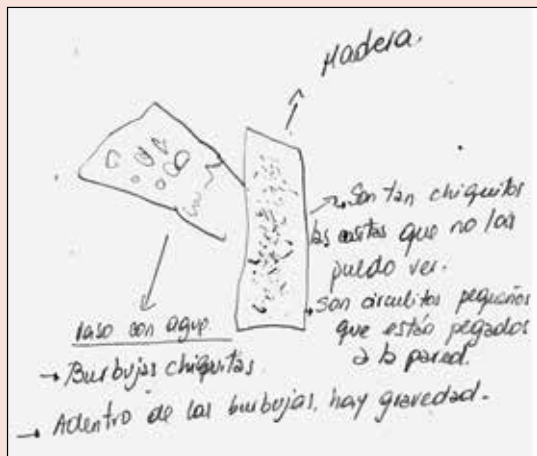 Madera.
Son tan chiquitos
las cositas que no las
puedo ver.
son circulitos pequeños
que están pegados
a la pared.
vaso con agua.
→ Burbujas chiquitas
→ Adentro de las burbujas, hay gravedad.